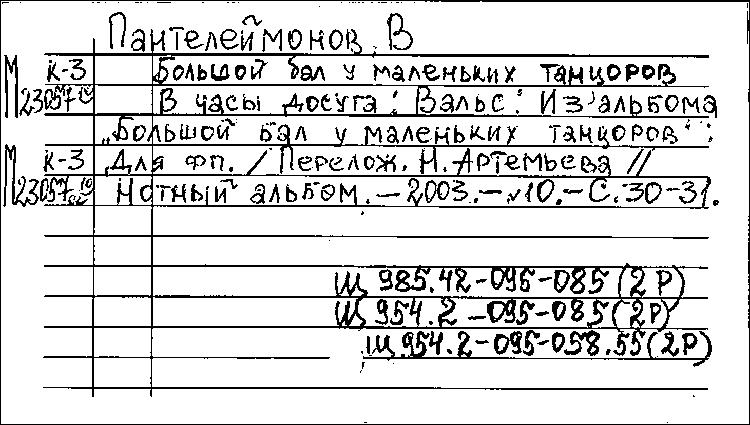 Пантелеймонов, В
К-3 Большой бал у маленьких танцоров
М 23057 В часы досуга: Вальс: Из альбома
„Большой бал у маленьких танцоров“:
К-3 Для фп. / Перелож. Н. Артемьева //
М 23057 Нотный альбом. – 2003. – №10. – С. 30-31.
Щ 985.42-095-085 (2Р)
Щ 954.2-095-085 (2Р)
Щ 954.2-095-058.55 (2Р)